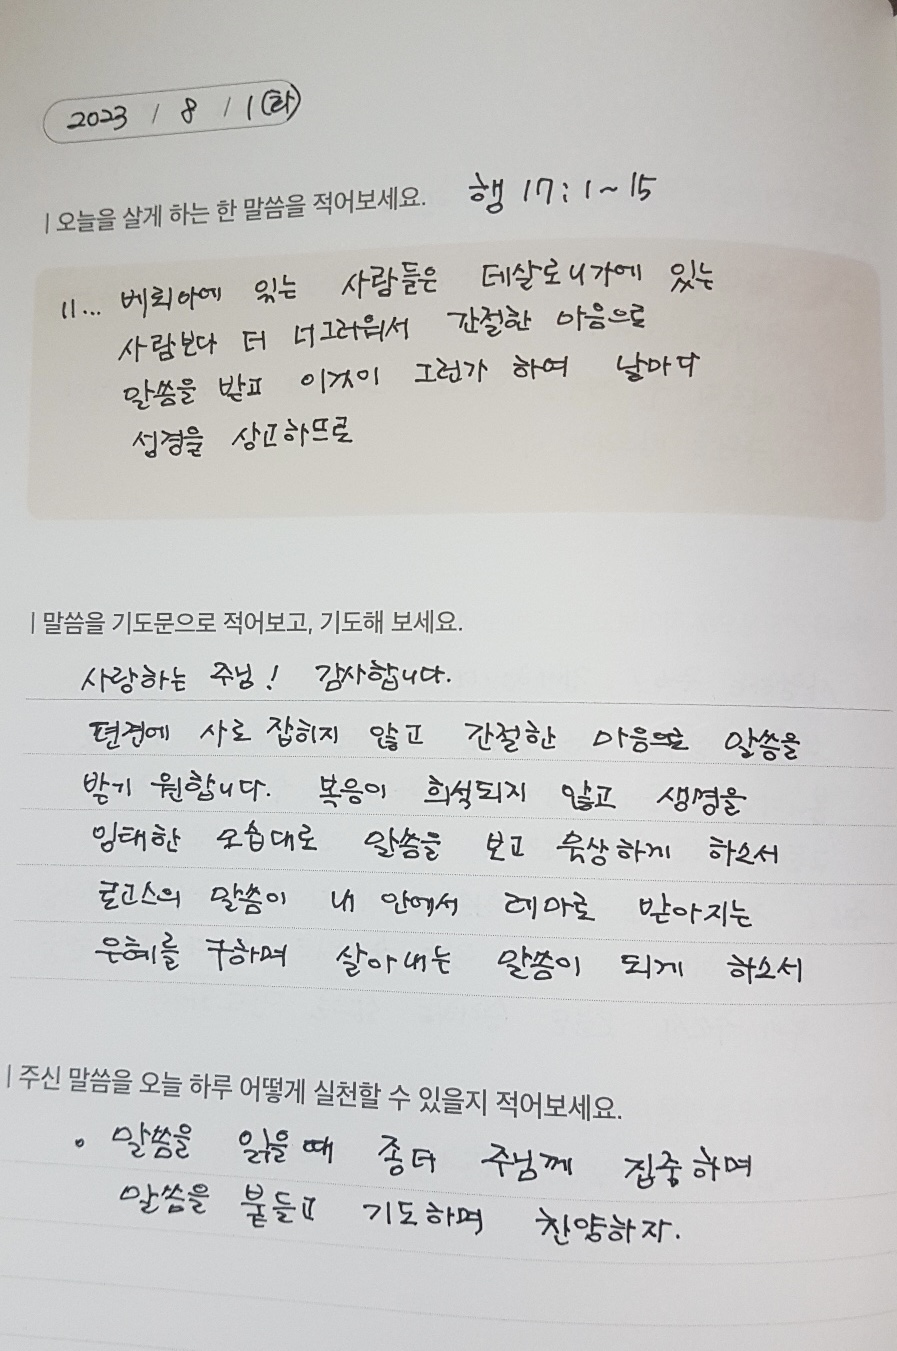 2023 / 8 / 1 (화)
| 오늘을 살게 하는 한 말씀을 적어보세요. 행 17:1~15
11... 베뢰아에 있는 사람들은 데살로니가에 있는
사람보다 더 너그러워서 간절한 마음으로
말씀을 받고 이것이 그런가 하여 날마다
성경을 상고하므로
| 말씀을 기도문으로 적어보고, 기도해 보세요.
사랑하는 주님! 감사합니다.
편견에 사로 잡히지 않고 간절한 마음으로 말씀을
받기 원합니다. 복음이 희석되지 않고 생명을
잉태한 모습대로 말씀을 보고 묵상하게 하소서
로고스의 말씀이 내 안에서 레마로 받아지는
은혜를 구하며 살아내는 말씀이 되게 하소서
| 주신 말씀을 오늘 하루 어떻게 실천할 수 있을지 적어보세요.
• 말씀을 읽을때 좀더 주님께 집중하며
말씀을 붙들고 기도하며 찬양하자.